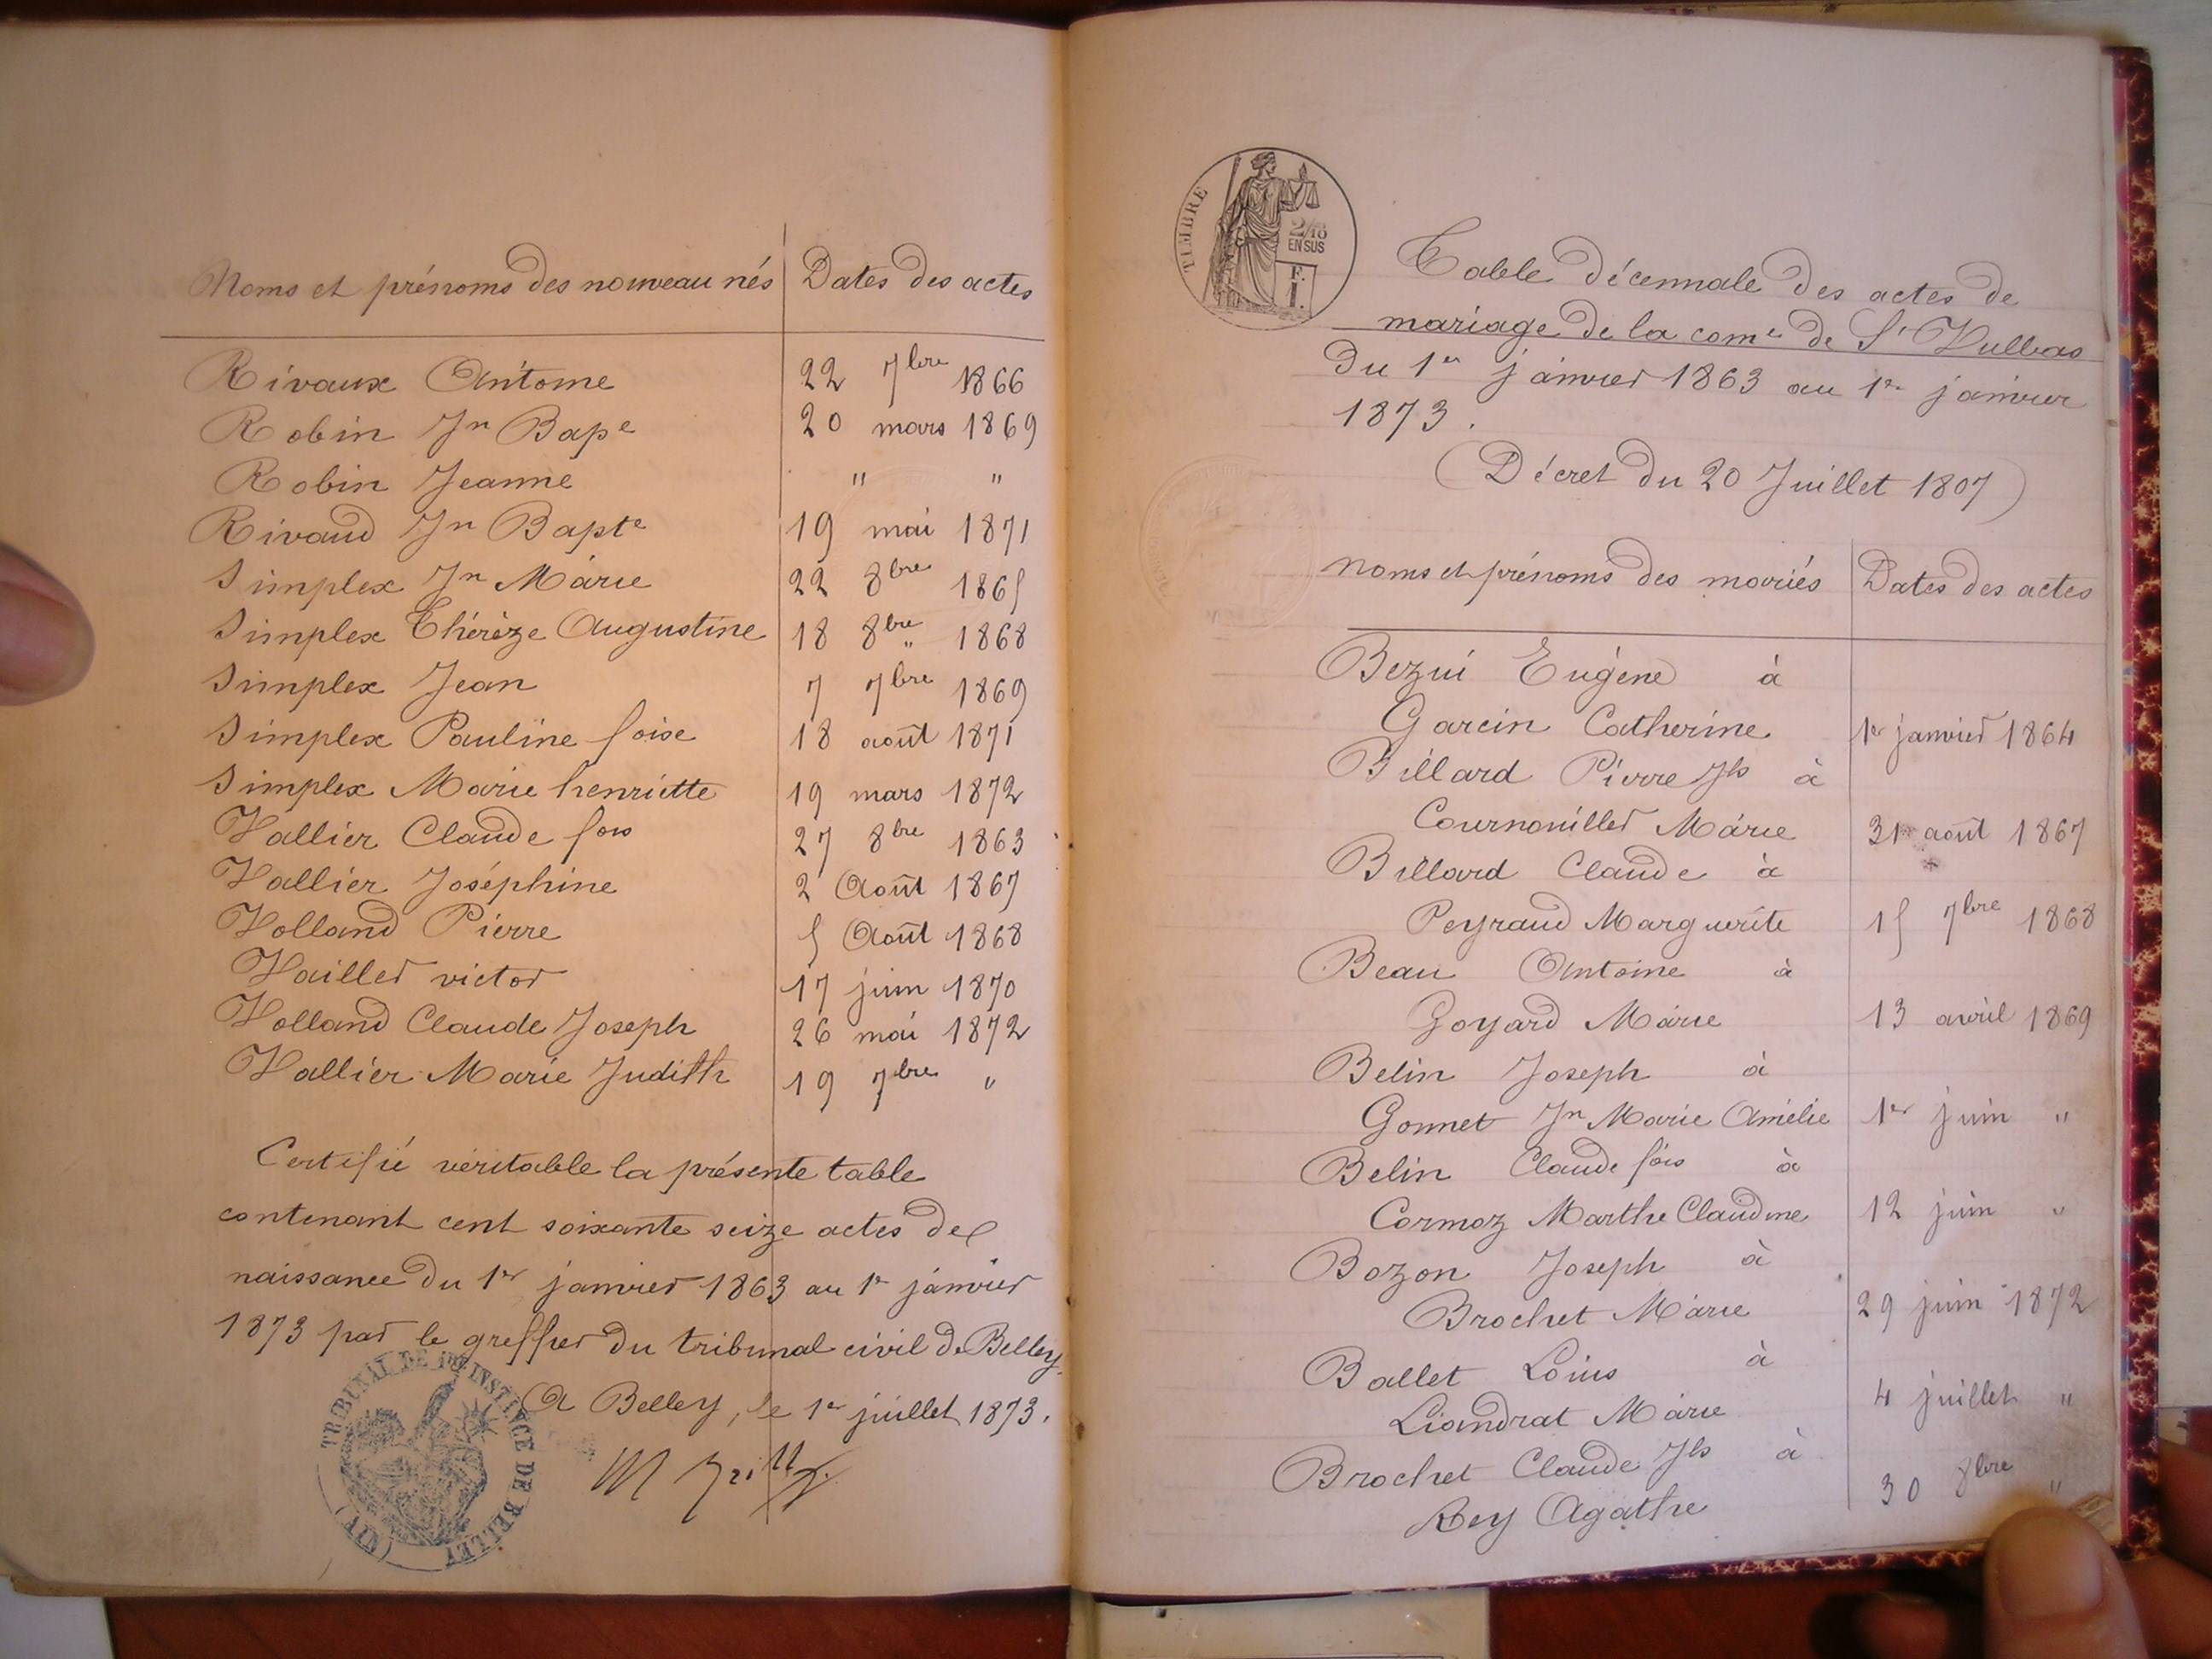 Noms et prénoms des nouveau nés Dates des actes
Rivaux Antoine 22 7bre 1866
Robin Jn Bape 20 mars 1869
Robin Jeanne " "
Rivaud Jn Bapte 19 mai 1871
Simplex Jn Marie 22 8bre 1865
Simplex Thérèze Augustine 18 8bre " 1868
Simplex Jean 7 7bre 1869
Simplex Pauline foise 18 août 1871
Simplex Marie henriette 19 mars 1872
Vallier Claude fois 27 8bre 1863
Vallier Joséphine 2 Août 1867
Volland Pierre 5 Août 1868
Vailler victor 17 juin 1870
Volland Claude Joseph 26 mai 1872
Vallier Marie Judith 19 7bre "
Certifié véritable la présente table
contenant cent soixante seize actes de
naissance du 1er janvier 1863 au 1er janvier
1873 par le greffier du tribunal civil de Belley
A Belley, le 1er juillet 1873.
TRIBUNAL DE 1RE INSTANCE DE BELLEY (AIN)
TIMBRE
2/10
EN SUS
F.
1.
Table décennale des actes de
mariage de la come de St Vulbas
Du 1er janvier 1863 au 1er janvier
1873.
(Décret du 20 Juillet 1807)
noms et prénoms des mariés Dates des actes
Bezui Eugène à
Garcin Catherine 1er janvier 1864
Billard Pierre Jh à
Cournouiller Marie 31 août 1867
Billard Claude à
Peyraud Marguerite 15 7bre 1868
Beau Antoine à
Goyard Marie 13 avril 1869
Belin Joseph à
Gonnet Jn Marie Amélie 1er juin "
Belin Claude fois à
Cormoz Marthe Claudine 12 juin "
Bozon Joseph à
Brochet Marie 29 juin 1872
Ballet Loius à
Liandrat Marie 4 juillet "
Brochet Claude Jh à
Rey Agathe 30 8bre "